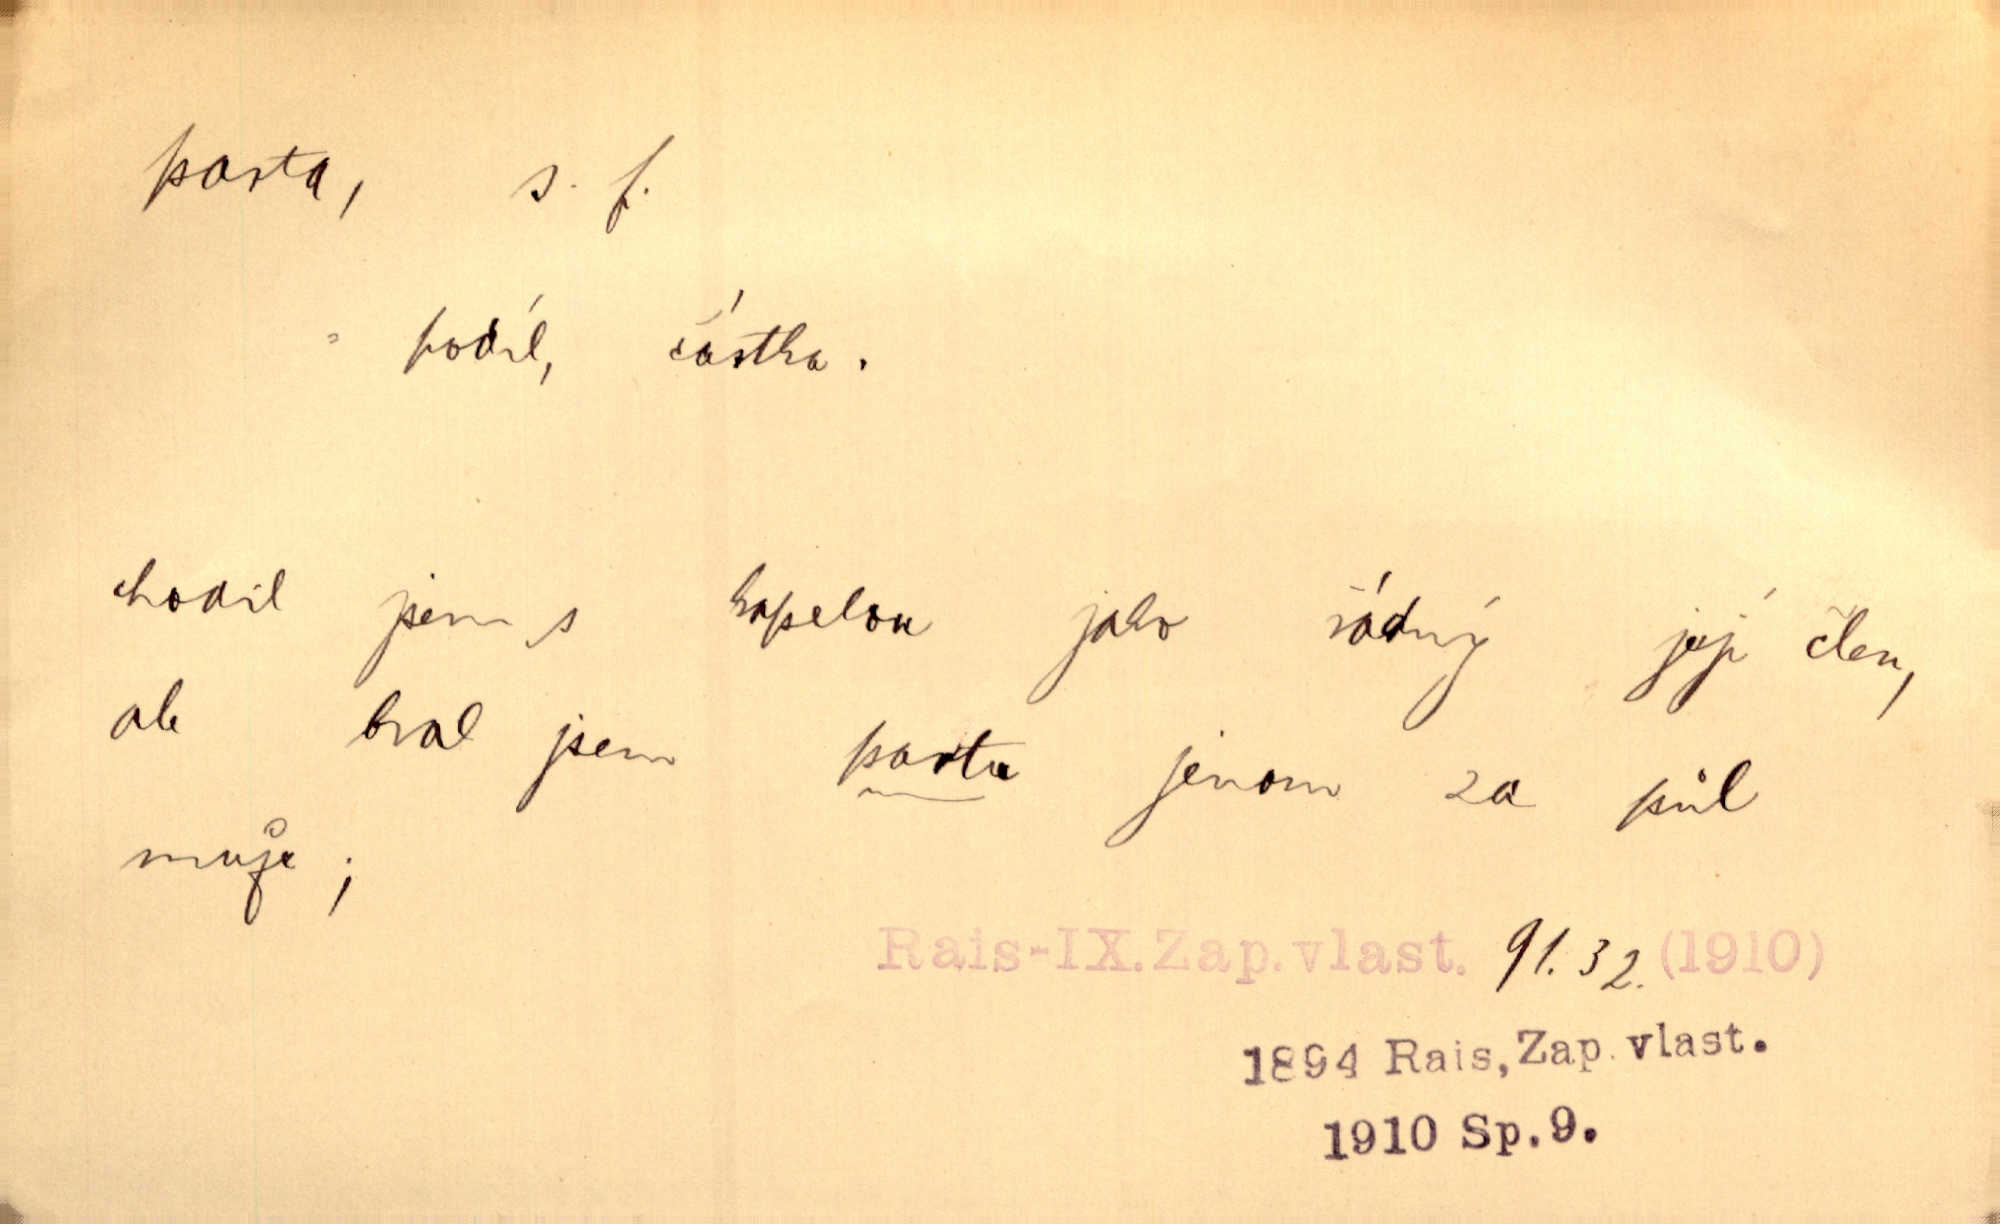 parta, s. f.
= podíl, částka.
chodil jsem s kapelou jako řádný její člen,
ale bral jsem partu jenom za půl
muže;
Rais-IX.Zap.vlast. 91.32. (1910)
1894 Rais, Zap. vlast.
1910 Sp. 9.